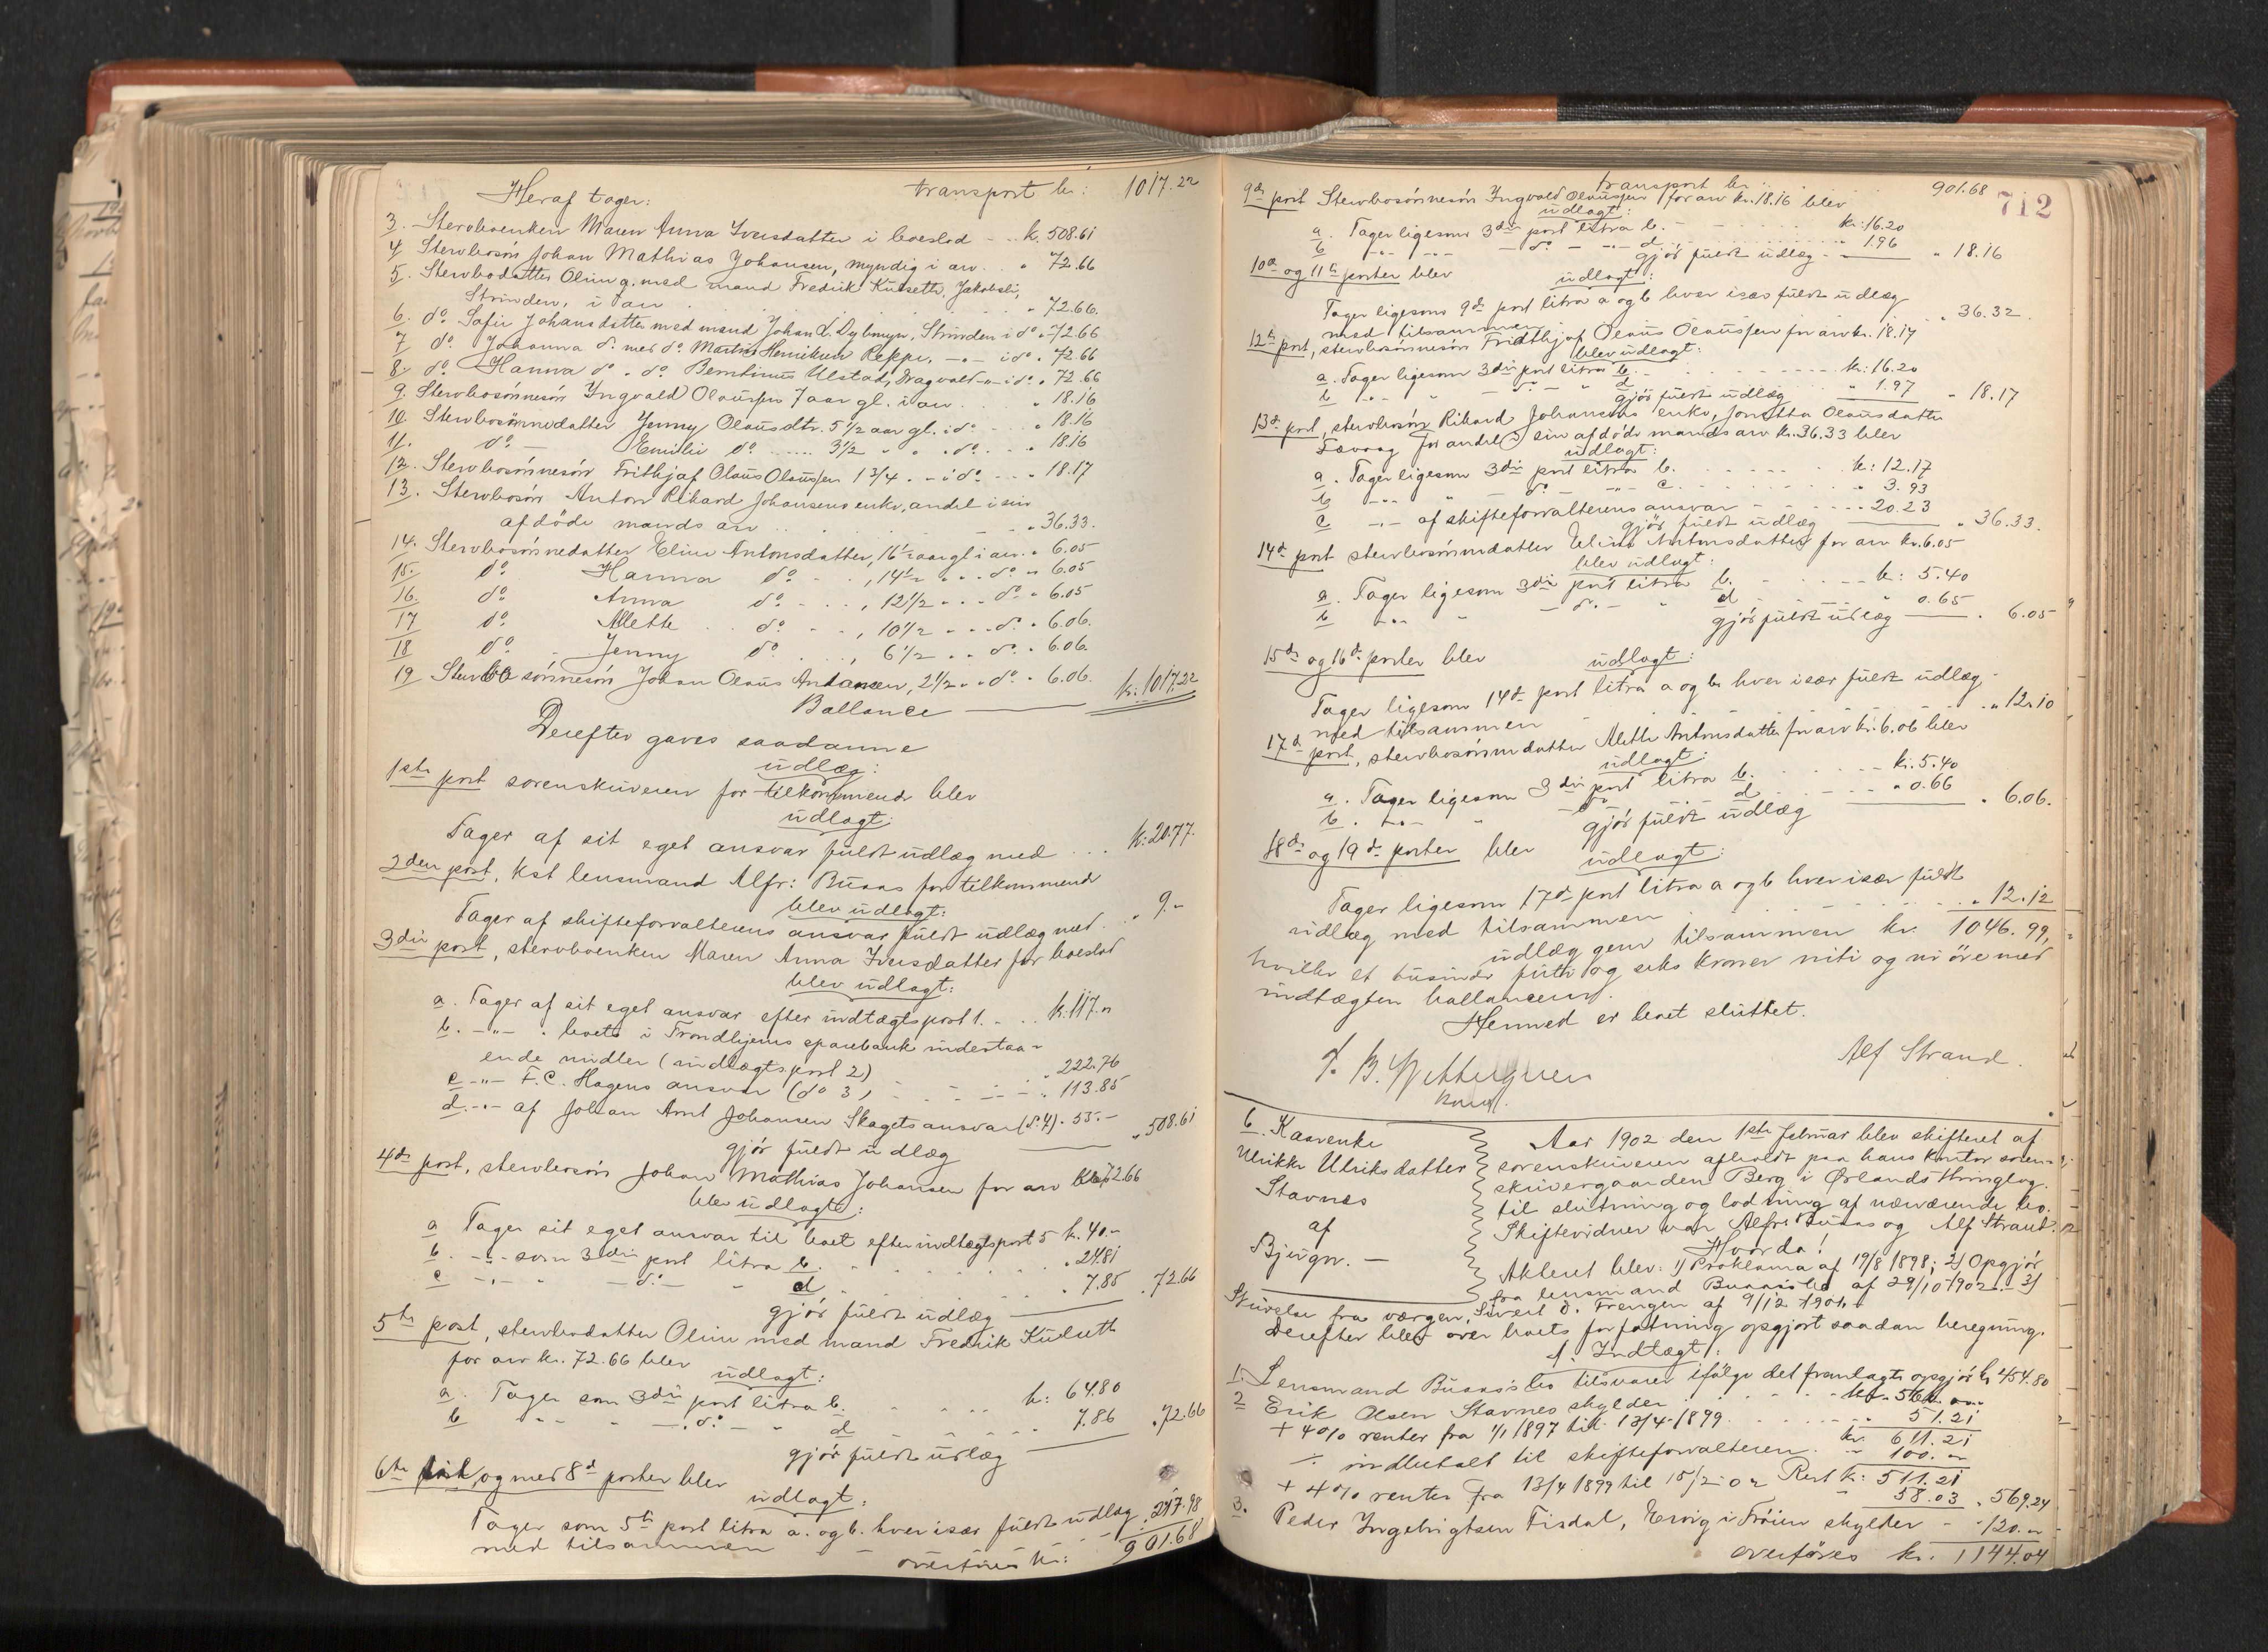 transport kr: 1017.22
Heraf tager:
3. Stervboenken Maren Anna Iversdatter i boeslod - .. k. 508.61
4. Stervbosøn Johan Mathias Johansen, myndig i arv . . " 72.66
5. Stervbodatter Oline g. med mand Fredrik Kulseth, Jakobsli,
Strinden, i arv . . . " 72.66.
6. do. Sofie Johansdatter med mand Johan L. Dybmyr, Strinden i do. " 72.66
7 do. Johanna d. med do. Martin Henriksen Reppe, -"- i do. " 72.66
8. do. Hanna do. " do. Berntinus Ulstad, Dragvold -"- i do. " 72.66
9. Stervbosønnesøn Yngvald Olaussen 7 aar gl. i arv . . " 18.16
10. Stervbosønnedatter Jenny Olausdtr. 5 1/2 aar gl. i do. - - " 18.16
11. do. - Emilie do. ..... 3 1/2 " " . do. . . " 18.16
12. Stervbosønnesøn Frithjof Olaus Olaussen 1 3/4 . - i do. - - " 18.17
13. Stervbosøn Anton Rikard Johansens enke, andel i sin
afdøde mands arv . . . " 36.33.
14. Stervbosønnedatter Eline Antonsdatter, 16 1/2 aar gl i arv. " 6.05
15. do. Hanna do. - . , 14 1/2 " . . do. " 6.05
16. do. Anna do. - . . , 12 1/2 . . . do. " 6.05
17 do. Alette . . do. . . . , 10 1/2 - . . do. . 6.06.
18 do. . Jenny do. . . . , 6 1/2 . . do. . 6.06.
19 Stervbosønnesøn Johan Olaus Antonsen, 2 1/2 . . do. . 6.06. kr. 1017.22
Ballance
Derefter gaves saadanne
udlæg:
1ste post sorenskriveren for tilkommende blev
udlagt:
Tager af sit eget ansvar fuldt udlæg med . . . k: 20.77.
2den post, Kst lensmand Alfr: Buaas for tilkommende
blev udlagt:
Tager af skifteforvalterens ansvar fuldt udlæg med . . " 9.-
3die post, stervboenken Maren Anna Iversdatter for boeslod
blev udlagt:
a. Tager af sit eget ansvar efter indtægtspost 1. - . . k. 117."
b. -"- . boets i Trondhjems sparebank indestaa-
ende midler (indtægtspost 2) " 222.76
c -"- F. C. Hagens ansvar (do 3) - - - - . 113.85
d. -"- af Johan Arnt Johansen Skagets ansvar (d. 4) . 55.-
gjør fuldt udlæg " 508.61
4de post, stervbosøn Johan Mathias Johansen for arv kr. 72.66
blev udlagt:
a Tager sit eget ansvar til boet efter indtægtspost 5 k. 40.-
b. -"- som 3die post litra b. . . . . 24.81
c -"- " - do. - " d . . . . 7.85
gjør fuldt udlæg . 72.66
5te post, stervbodatter Oline med mand Fredrik Kulseth
for arv kr. 72.66 blev
udlagt:
a. Tager som 3die post litra b. . . . k: 64.80
b " " " - do. - " d . . . 7.86
gjør fuldt udlæg . 72.66
6te og med 8de poster blev
udlagt:
Tager som 5te post litra a. og b. hver især fuldt udlæg
med tilsammen . 217.98
overføres kr: 901.68
712
transport kr . . . . 901.68
9de post Stervbosønnesøn Yngvald Olaussen for arv kr. 18.16 blev
udlagt:
a. Tager ligesom 3die post litra b. - - kr: 16.20
b -"- -"- - do. - -"- d . . . " 1.96
gjør fuldt udlæg . " 18.16
10de og 11te poster blev
udlagt:
Tager ligesom 9de post litra a og b hver især fuldt udlæg
med tilsammen . . " 36.32.
12te post, stervbosønnesøn Fridthjof Olaus Olaussen for arv kr. 18.17
blev udlagt:
a. Tager ligesom 3die post litra b. . . . kr: 16.20
b -"- " - do. - " d . . " 1.97
gjør fuldt udlæg " 18.17
13de post, stervbosøn Rikard Johansens enke, Jonetta Olausdatter
for andel i sin afdøde mands arv kr. 36.33 blev
udlagt:
a. Tager ligesom 3die post litra b. . . . k: 12.17
b -"- " - do. - -"- c. . . . " 3.93
c -"- af skifteforvalterens ansvar - . . . 20.23
gjør fuldt udlæg . 36.33.
14de post stervbosønnedatter Eline Antonsdatter for arv kr. 6.05
blev udlagt:
a. Tager ligesom 3die post litra b. - . . . k: 5.40
b -"- " - do. - " d . . . " 0.65
gjør fuldt udlæg . 6.05
15de og 16de poster blev
udlagt:
Tager ligesom 14de post litra a og b hver især fuldt udlæg
med tilsammen . . . " 12.10
17de post, stervbosønnedatter Alette Antonsdatter for arv kr. 6.06 blev
udlagt:
a. Tager ligesom 3die post litra b. - . . . kr. 5.40
b. -"- " do. d . . . " 0.66
gjør fuldt udlæg . 6.06.
18de og 19de poster blev
udlagt:
Tager ligesom 17de post litra a og b hver især fuldt
udlæg med tilsammen . . . " 12.12
udlæggene tilsammen kr. 1046.99,
hvilke et tusinde førti og seks kroner niti og ni øre med
indtægten ballancerer.
Hermed er boet sluttet.
Alf Strand.
6. Kaarenke
Ulrikke Ulriksdatter
Stavnes
af
Bjugn. -
Aar 1902 den 1ste februar blev skifteret af
sorenskriveren afholdt paa hans kontor soren-
skrivergaarden Berg i Ørlands thinglag.
til slutning og lodning af nærværende bo.
Skiftevidner var Alfr: Buaas og Alf Strand.
Hvorda!
Akteret blev: 1) Proklama af 19/8 1898; 2) Opgjør
fra lensmand Buaas's bo af 29/10 1902. - 3)
Skrivelse fra værgen, Sivert O. Frengen af 9/12 1901. -
Derefter blev over boets forfatning opgjort saadan beregning.
1. Indtægt:
1. Lensmand Buaas's bo tilsvarer ifølge det fremlagte opgjør kr 454.80
2 Erik Olsen Stavnes skylder . . . . kr. 560.-
+ 4% renter fra 1/1 1897 til 13/4 1899 . . . . " 51.21
kr. 611.21
÷ indbetalt til skifteforvalteren . . " 100.-
Rest kr: 511.21
+ 4% renter fra 13/4 1899 til 15/2 02 " 58.03 . 569.24
3. Peder Ingebrigtsen Tisdal, Ervig i Frøien skylder - " 120.-
overføres kr. 1144.04